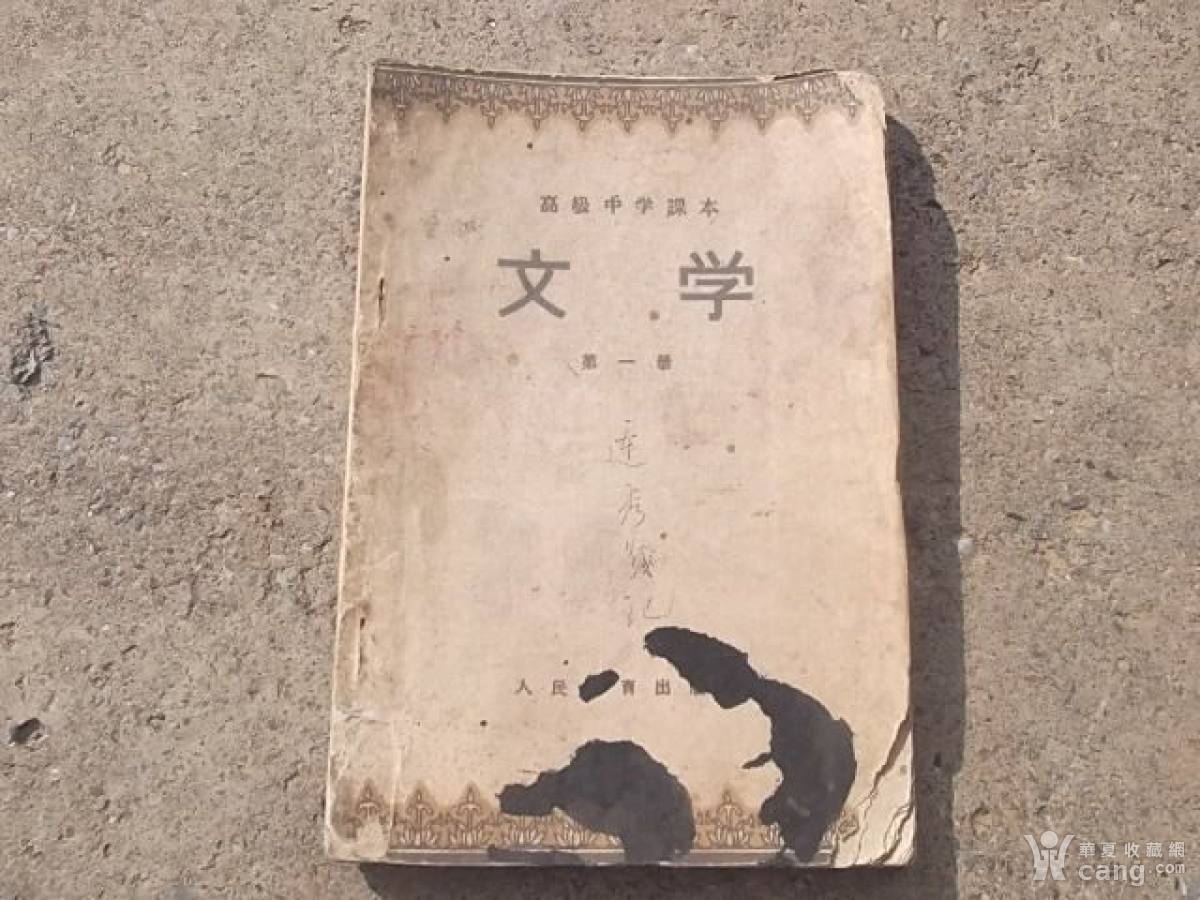 高級中学課本
文学
第一册
人民 育出
華夏收藏網
cang.com